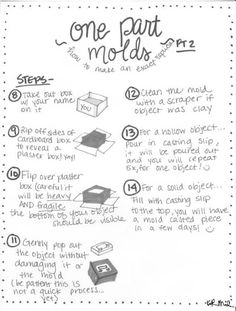 one part
molds
how to make an exact replica
PT 2
STEPS-
8 Take out box
w/ your name
on it
YOU
9 Rip off sides of
cardboard box
to reveal a
plaster box! Yay!
10 Flip over plaster
box (careful it
will be heavy
AND fragile
the bottom of your object
should be visible
11 Gently pop out
the object without
damaging it or
the mold
(be patient this is
not a quick process...
yet)
12 Clean the mold
with a scraper if
object was clay
13 For a hollow object...
Pour in casting slip,
it will be poured out
and you will repeat
6x, for one object!
14 For a solid object...
Fill with casting slip
to the top, you will have
a mold casted piece
in a few days!